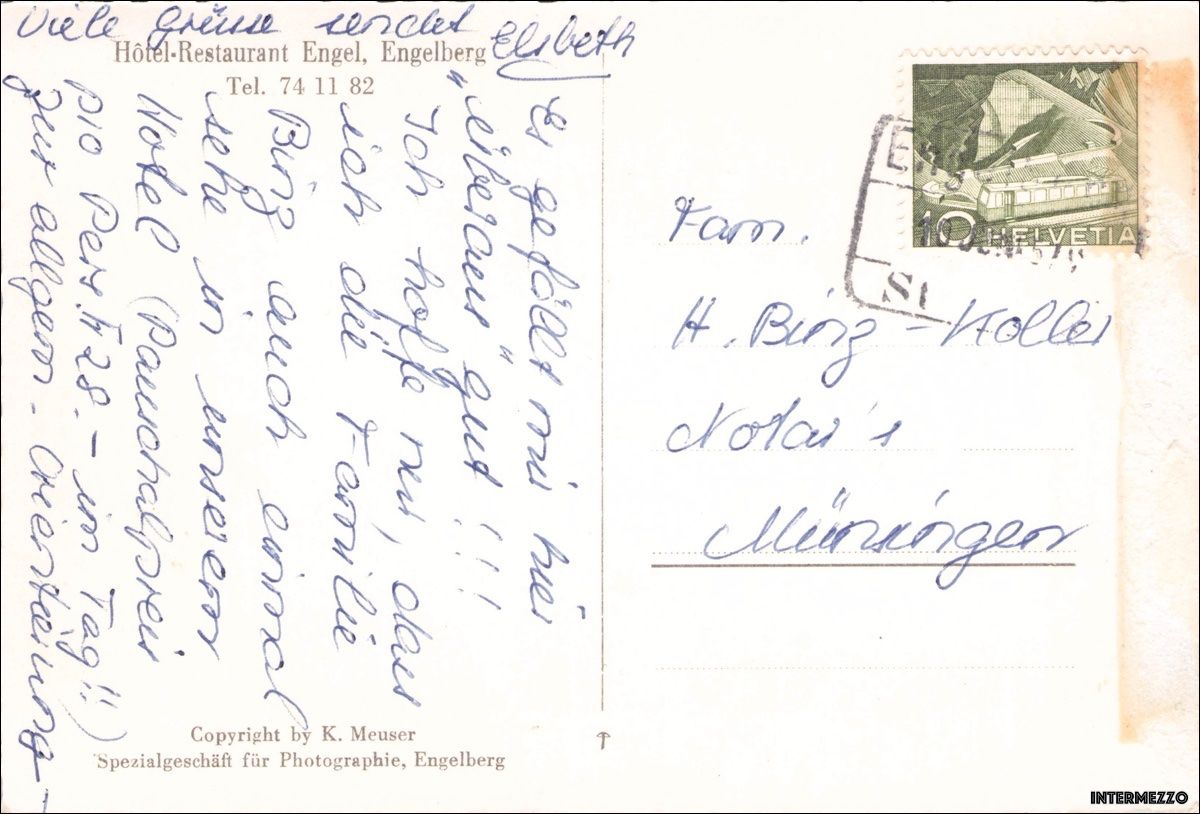 Viele Grüsse sendet Elsbeth
Hôtel-Restaurant Engel, Engelberg
Tel. 74 11 82
Es gefällt mir hier
"überaus" gut !!!
Ich hoffe nur, dass
ich die Familie
Binz auch einmal
sehe in unserem
Hotel (Pauschalpreis
pro Pers. Fr 28.- im Tag!!)
zur allgem. Orientierung-
Copyright by K. Meuser
Spezialgeschäft für Photographie, Engelberg
10 HELVETIA
Fam.
H. Binz-Koller
Notar's
Münsingen
INTERMEZZO